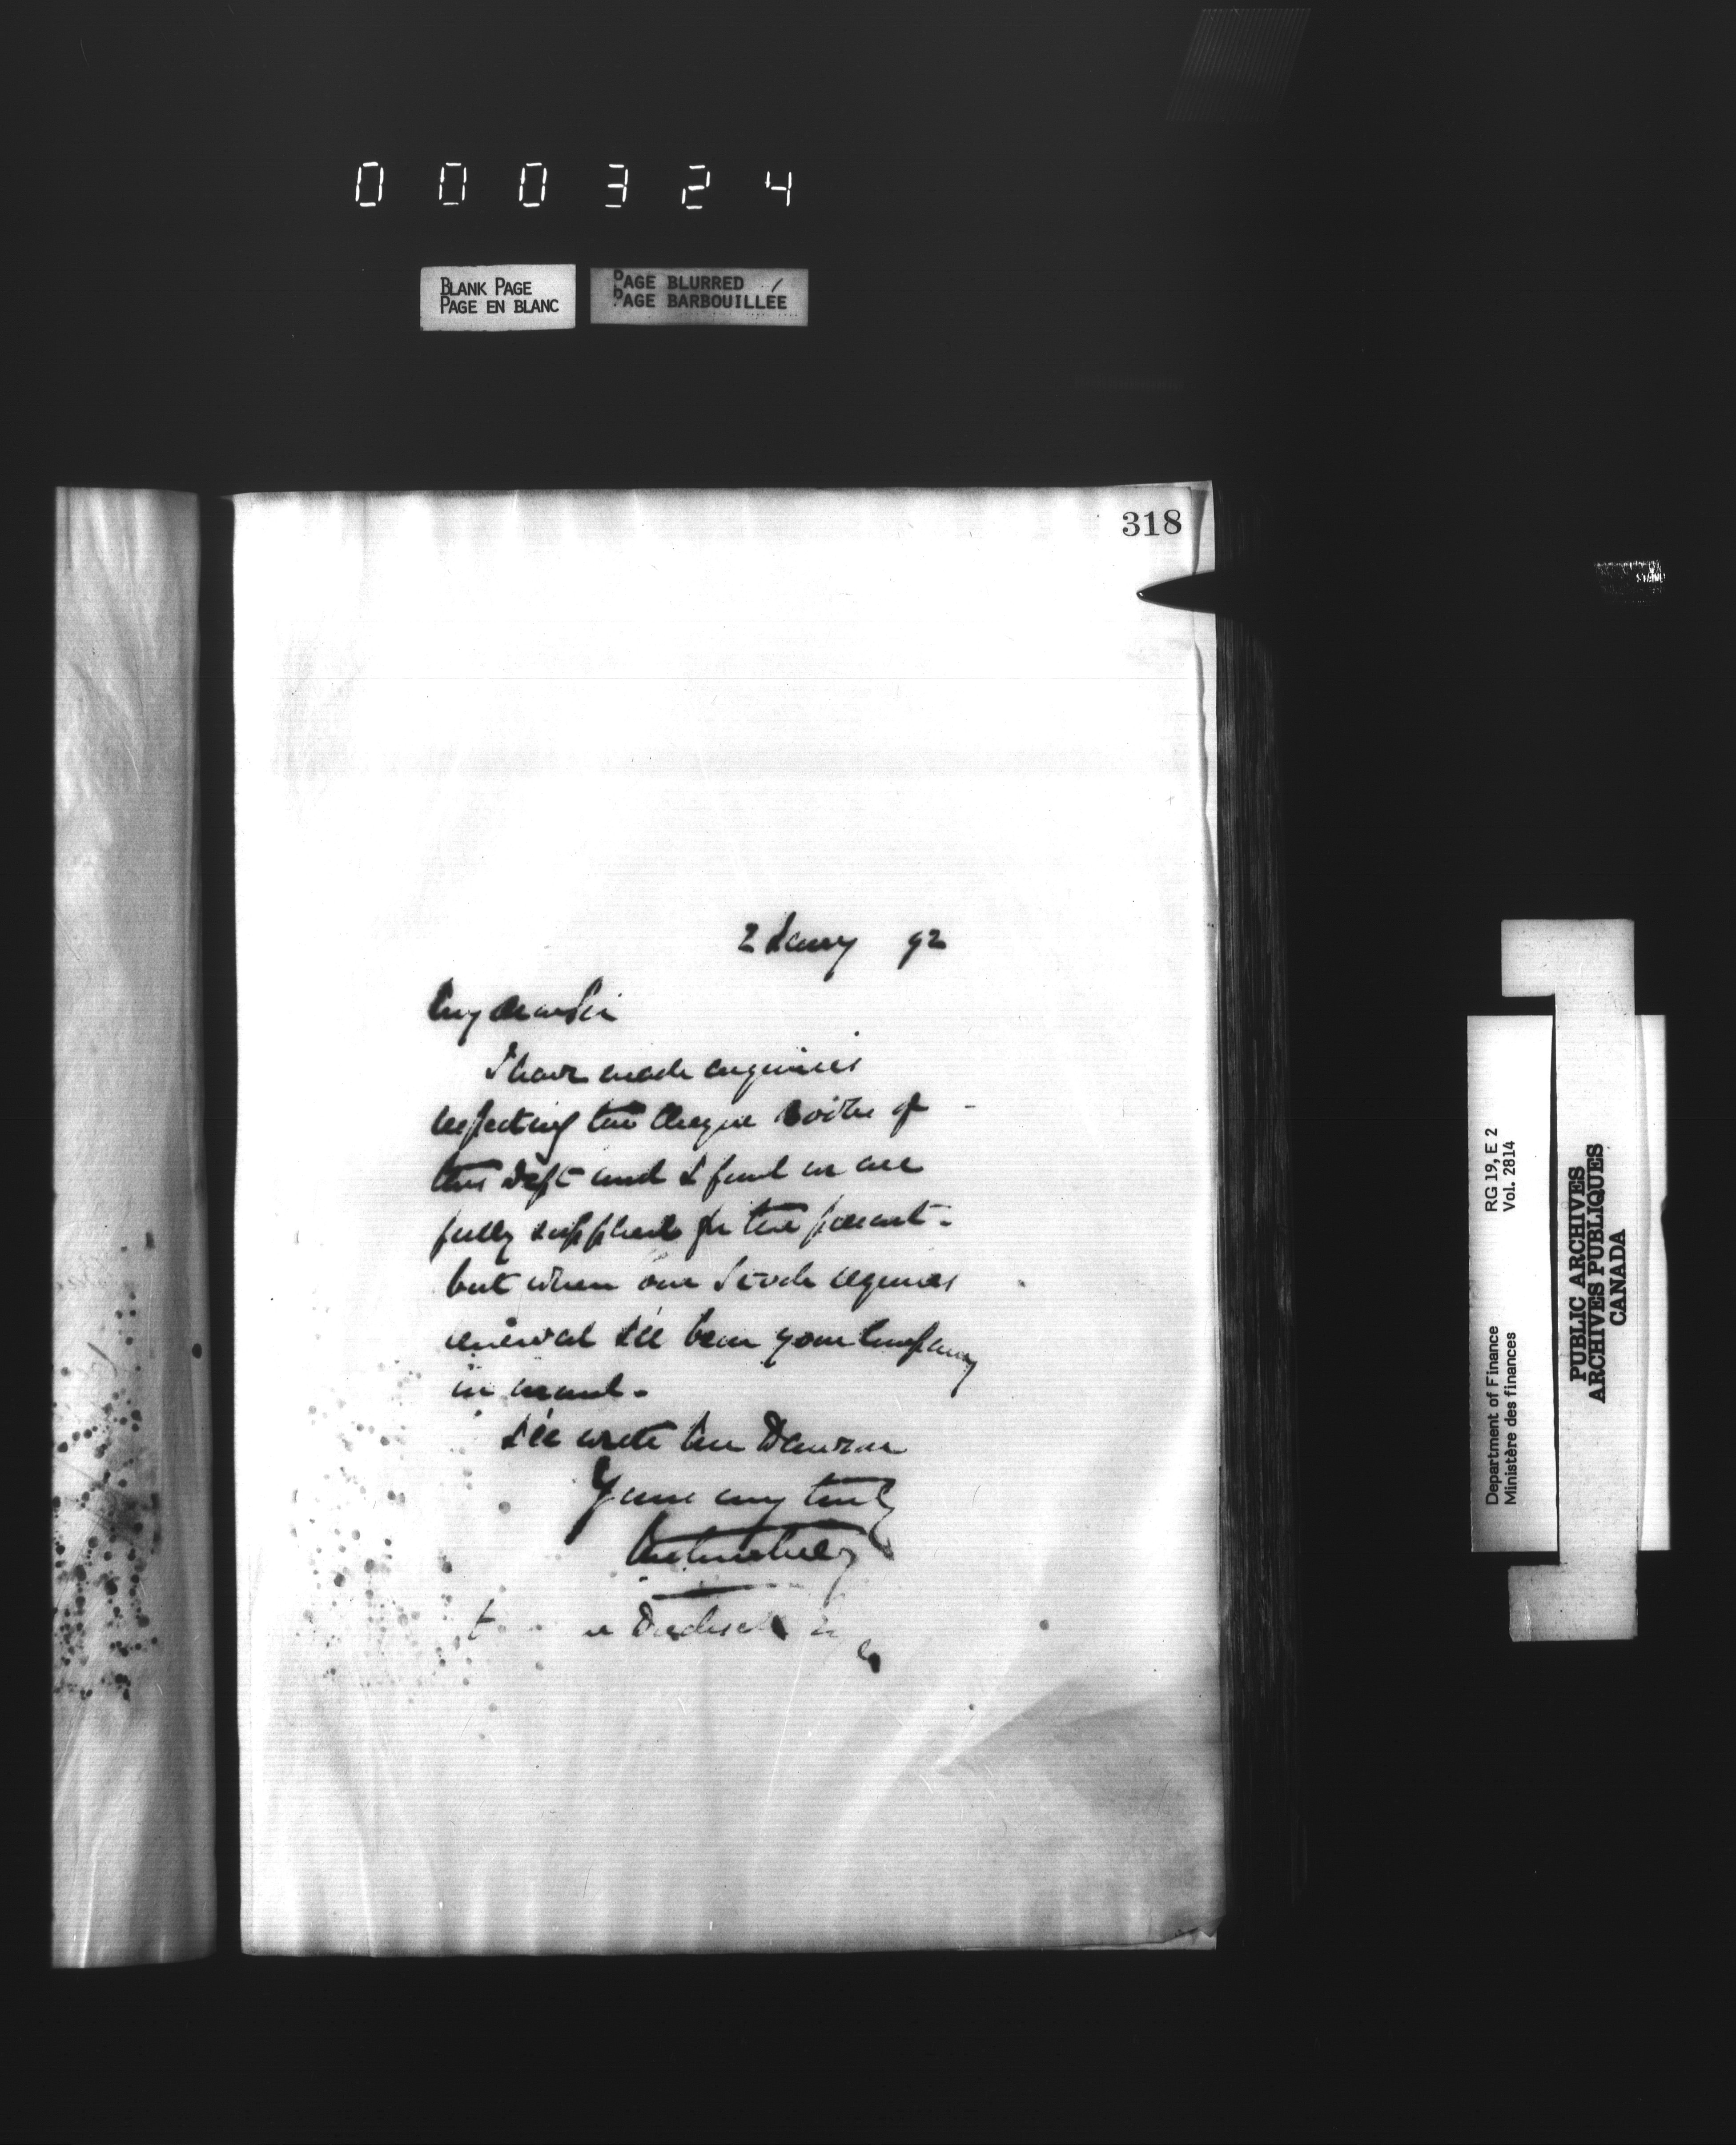 000324
BLANK PAGE
PAGE EN BLANC
PAGE BLURRED
PAGE BARBOUILLÉE
318
2 92
My dear Sir
I have made enquiries
respecting the cheque books of
this Dept and I find we are
fully supplied for the present -
but when our stock requires
renewal I'll bear your Company
in mind -
I'll write
Yours very truly
RG 19, E 2
Vol. 2814
Department of Finance
Ministère des finances
PUBLIC ARCHIVES
ARCHIVES PUBLIQUES
CANADA